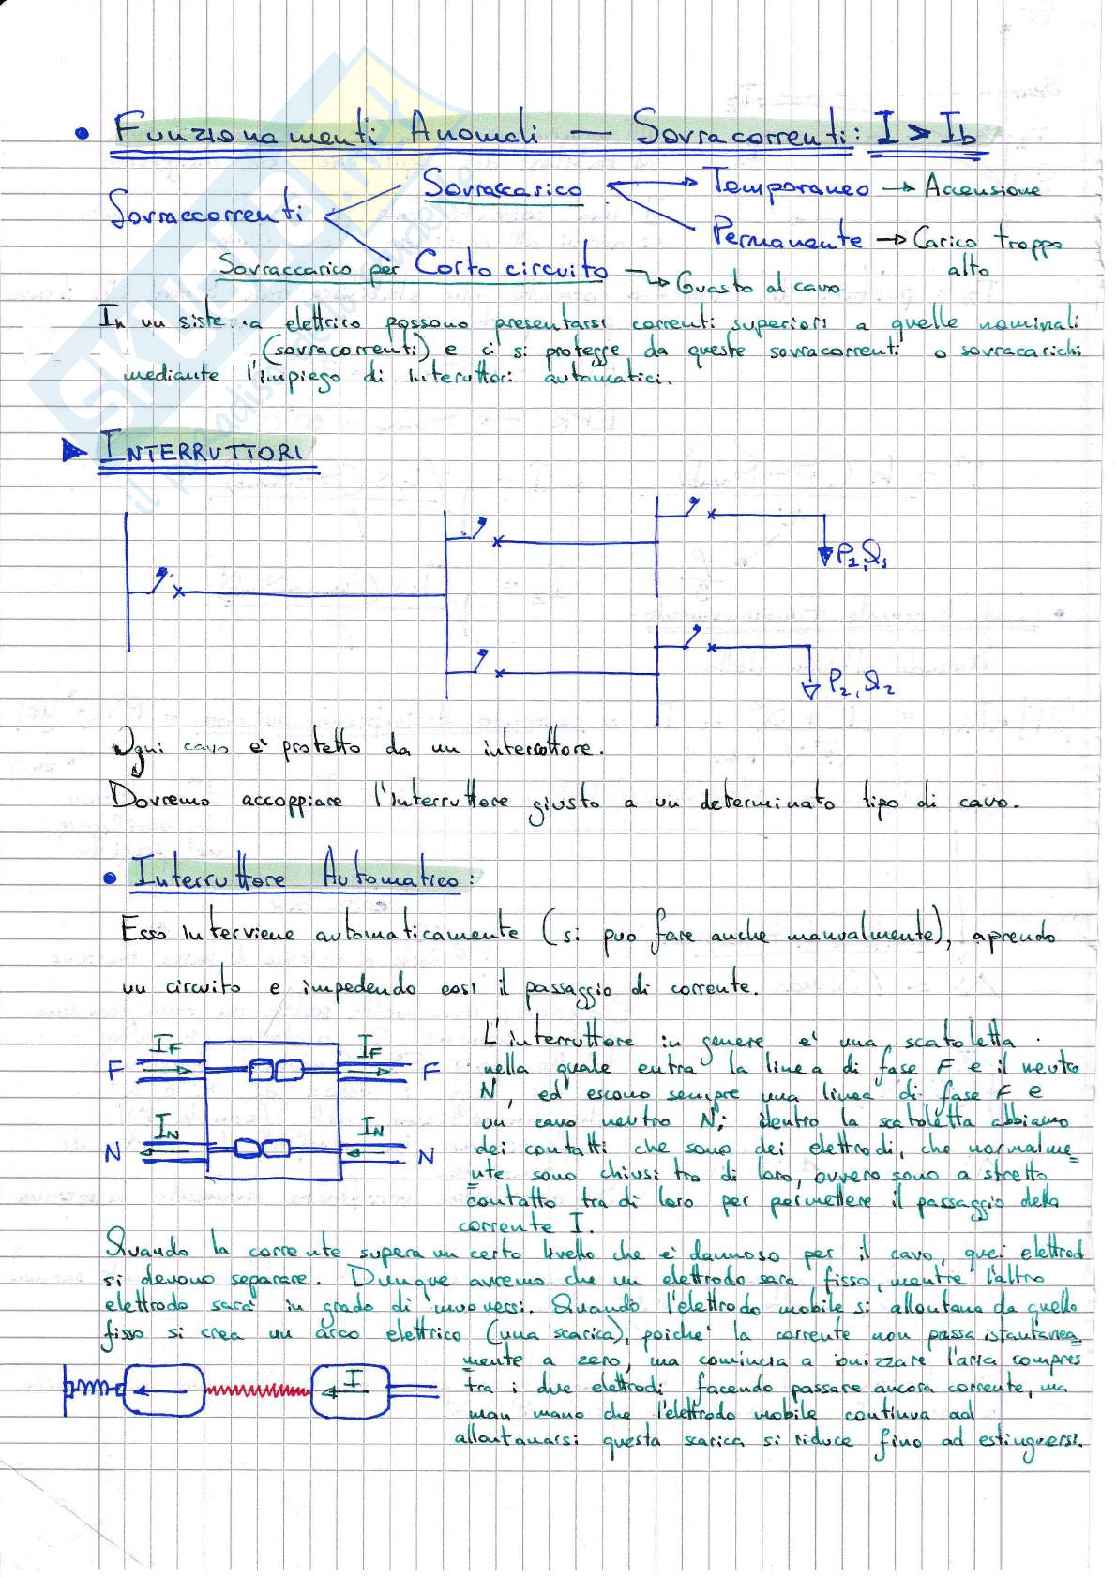 • Funzionamenti Anomali — Sovracorrenti: I > Ib
Sovraccorrenti
Sovraccarico → Temporaneo → Accensione
Permanente → Carico troppo alto
Sovraccarico per Corto circuito → Guasto al cavo
In un siste..a elettrico possono presentarsi correnti superiori a quelle nominali
(sovracorrenti) e ci si protegge da queste sovracorrenti o sovracarichi
mediante l'impiego di Interruttori automatici.
▶ INTERRUTTORI
P1, Q1
P2, Q2
Ogni cavo e' protetto da un interruttore.
Dovremo accoppiare l'Interruttore giusto a un determinato tipo di cavo.
• Interruttore Automatico:
Esso Interviene automaticamente (si può fare anche manualmente), aprendo
un circuito e impedendo così il passaggio di corrente.
F IF IF F
N IN IN N
L'interruttore in genere e' una scatoletta
nella quale entra la linea di fase F e il neutro
N, ed escono sempre una linea di fase F e
un cavo neutro N; dentro la scatoletta abbiamo
dei contatti che sono dei elettrodi, che normalme=
nte sono chiusi tra di loro, ovvero sono a stretto
contatto tra di loro per permettere il passaggio della
corrente I.
Quando la corrente supera un certo livello che e' dannoso per il cavo, quei elettrod
si devono separare. Dunque avremo che un elettrodo sarà fisso, mentre l'altro
elettrodo sarà in grado di muoversi. Quando l'elettrodo mobile si allontana da quello
fisso si crea un arco elettrico (una scarica), poiche' la corrente non passa istantanea
mente a zero, ma comincia a ionizzare l'aria compres
tra i due elettrodi facendo passare ancora corrente, ma
man mano che l'elettrodo mobile continua ad
allontanarsi questa scarica si riduce fino ad estinguersi.
I